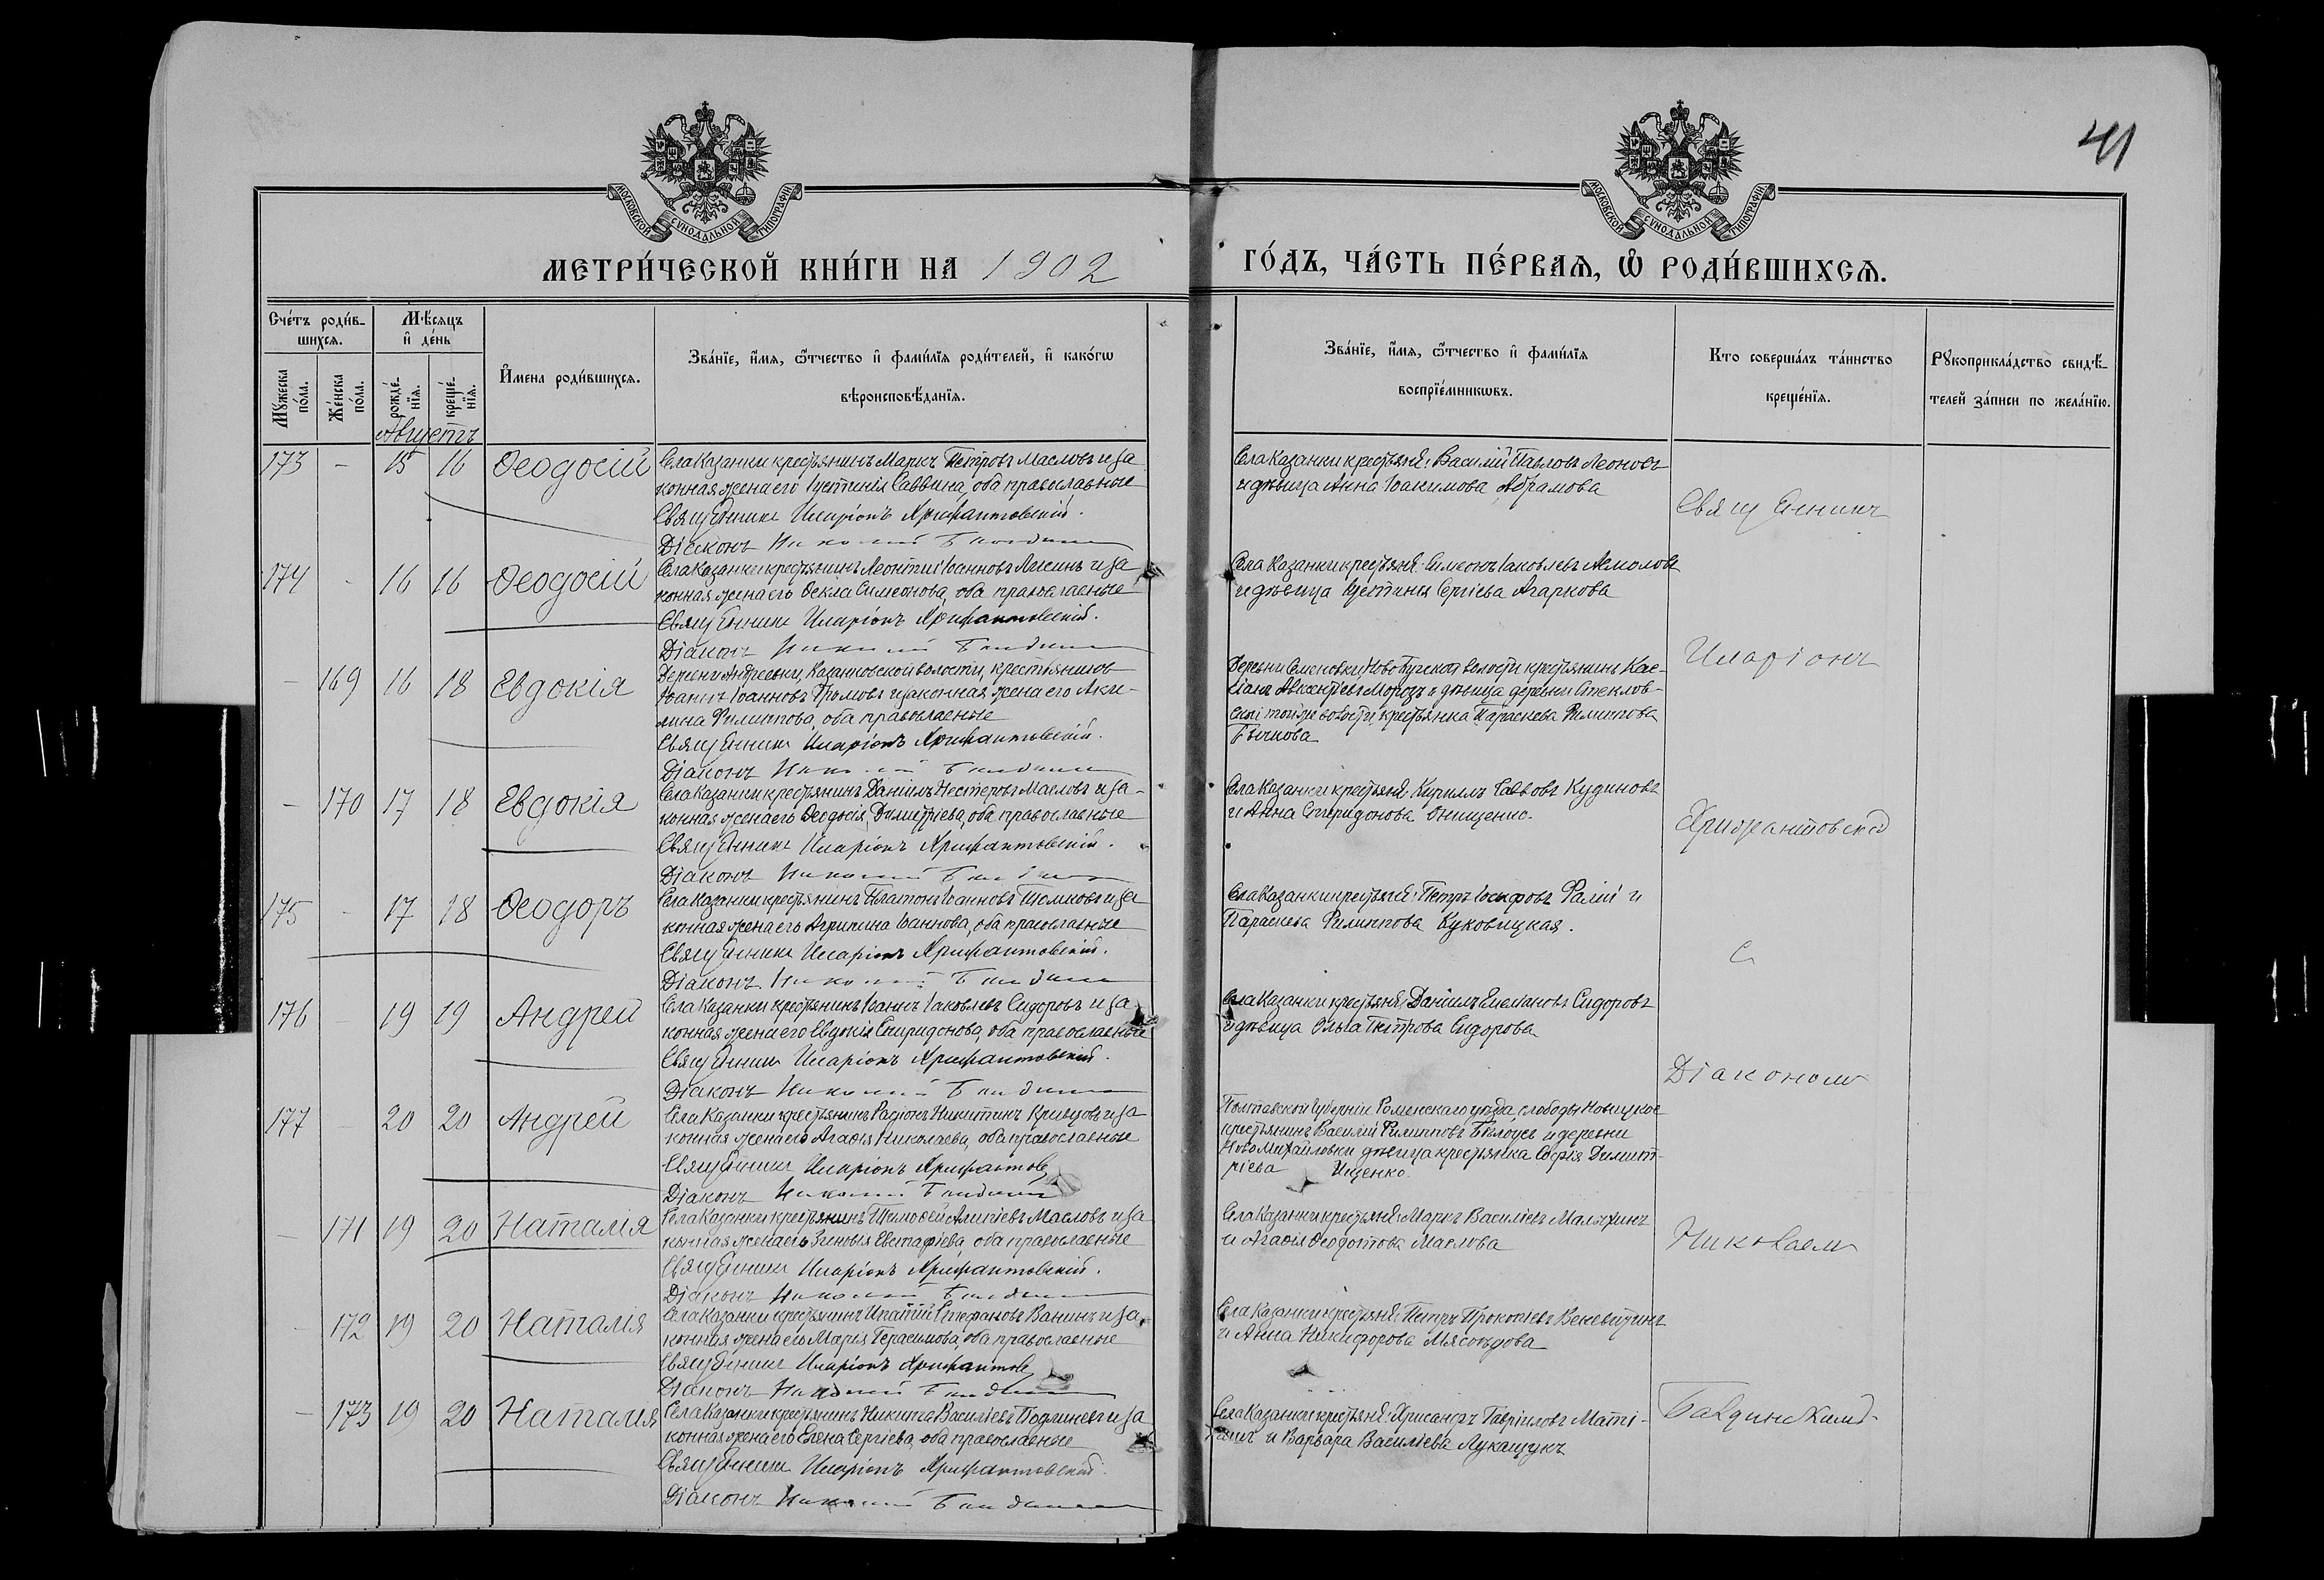 41
МОСКОВСКОЙ СѴНОДАЛЬНОЙ ТИПОГРАФІИ
МОСКОВСКОЙ СѴНОДАЛЬНОЙ ТИПОГРАФІИ
МЕТРИ́ЧЕСКОЙ КНИ́ГИ НА 1902
ГО́ДЪ, ЧА́СТЬ ПЕ́РВАѦ, Ѡ҆ РОДИ́ВШИХСѦ.
Сче́тъ роди́в-
шихсѧ.
Мꙋ́жеска
по́ла.
Же́нска
по́ла.
Мѣ́сѧцъ
и҆ де́нь
рожде́-
нїѧ.
креще́-
нїѧ.
Августъ
И҆мена роди́вшихсѧ.
Зва́нїе, и҆́мѧ, ѻ҆́тчество и҆ фами́лїѧ роди́телей, и҆ како́гѡ
вѣроисповѣ́данїѧ.
Зва́нїе, и҆́мѧ, ѻ҆́тчество и҆ фами́лїѧ
воспрїе́мникѡвъ.
Кто соверша́лъ та́инство
креще́нїѧ.
Рꙋкоприкла́дство свидѣ́-
телей за́писи по жела́нїю.
173 - 15 16 Ѳеодосій
Села Казанки крестьянинъ Маркъ Петровъ Масловъ и за
конная жена его Іустинія Саввина, оба православные
Священникъ Иларіонъ Хрисантовскій.
Діаконъ Николай
Села Казанки крестьяне: Василій Павловъ Леоновъ
и дѣвица Анна Іоакимова Абрамова
174 - 16 16 Ѳеодосій
Села Казанки крестьянинъ Леонтій Іоанновъ Лысинъ и за
конная жена его Ѳекла Симеонова, оба православные
Священникъ Иларіонъ Хрисантовскій.
Діаконъ Николай
Села Казанки крестьяне: Симеонъ Іаковлевъ
и дѣвица Іустинія Сергіева Агаркова
- 169 16 18 Евдокія
Деревни Андреевки, Казанковской волости, крестьянинъ
Іоаннъ Іоанновъ Громовъ и законная жена его Аки-
лина Филиппова, оба православные
Священникъ Иларіонъ Хрисантовскій.
Діаконъ Николай
Деревни Семеновки, Ново Бугской волости крестьянинъ Кас-
сіанъ Авксентіевъ Морозъ и дѣвица деревни
той же волости, крестьянка Параскева Филиппова
Бычкова
- 170 17 18 Евдокія
Села Казанки крестьянинъ Даніилъ Несторовъ Масловъ и за-
конная жена его Ѳеодосія Димитріева, оба православные
Священникъ Иларіонъ Хрисантовскій.
Діаконъ Николай
Села Казанки крестьяне: Кириллъ Саввовъ Кудиновъ
и Анна Спиридонова Онищенко.
175 - 17 18 Ѳеодоръ
Села Казанки крестьянинъ Платонъ Іоанновъ и за
конная жена его Агрипина Іоаннова, оба православные
Священникъ Иларіонъ Хрисантовскій.
Діаконъ Николай
Села Казанки крестьяне: Петръ Іосифовъ Фалій и
Параскева Филиппова Куковицкая.
176 19 19 Андрей
Села Казанки крестьянинъ Іоаннъ Іаковлевъ Сидоровъ и за
конная жена его Евдокія Спиридонова, оба православные
Священникъ Иларіонъ Хрисантовскій.
Діаконъ Николай
Села Казанки крестьяне: Даніилъ Емеліановъ Сидоровъ
и дѣвица Ольга Петрова Сидорова
177 - 20 20 Андрей
Села Казанки крестьянинъ Родіонъ Никитинъ Кривцовъ и за
конная жена его Агаѳія Николаева, оба православные
Священникъ Иларіонъ Хрисантов
Діаконъ Николай
Полтавской губерніи Роменскаго уѣзда, слободы
крестьянинъ Василій Филипповъ Бѣлоусъ и деревни
Ново Михайловки дѣвица крестьянка Софія Димит-
ріева Ищенко.
- 171 19 20 Наталія
Села Казанки крестьянинъ Тимоѳей Алипіевъ Масловъ и за
конная жена его Зиновія Евстафіева, оба православные
Священникъ Иларіонъ Хрисантовскій.
Діаконъ Николай
Села Казанки крестьяне: Маркъ Василіевъ Малыхинъ
и Агаѳія Ѳеодотова Маслова
- 172 19 20 Наталія
Села Казанки крестьянинъ Ипатій Стефановъ Ванинъ и за
конная жена его Марія Герасимова, оба православные
Священникъ Иларіонъ Хрисантов
Діаконъ Николай
Села Казанки крестьяне: Петръ Прокопіевъ Веневитинъ
и Анна Никифорова Мясоѣдова
- 173 19 20 Наталія
Села Казанки крестьянинъ Никита Василіевъ и за
конная жена его Елена Сергіева, оба православные
Священникъ Иларіонъ Хрисантовскій.
Діаконъ Николай
Села Казанки крестьяне: Хрисанѳъ Гавріиловъ
и Варвара Василіева Лукащукъ
Священникъ
Иларіонъ
Хрисантовскій
съ
Діакономъ
Николаемъ